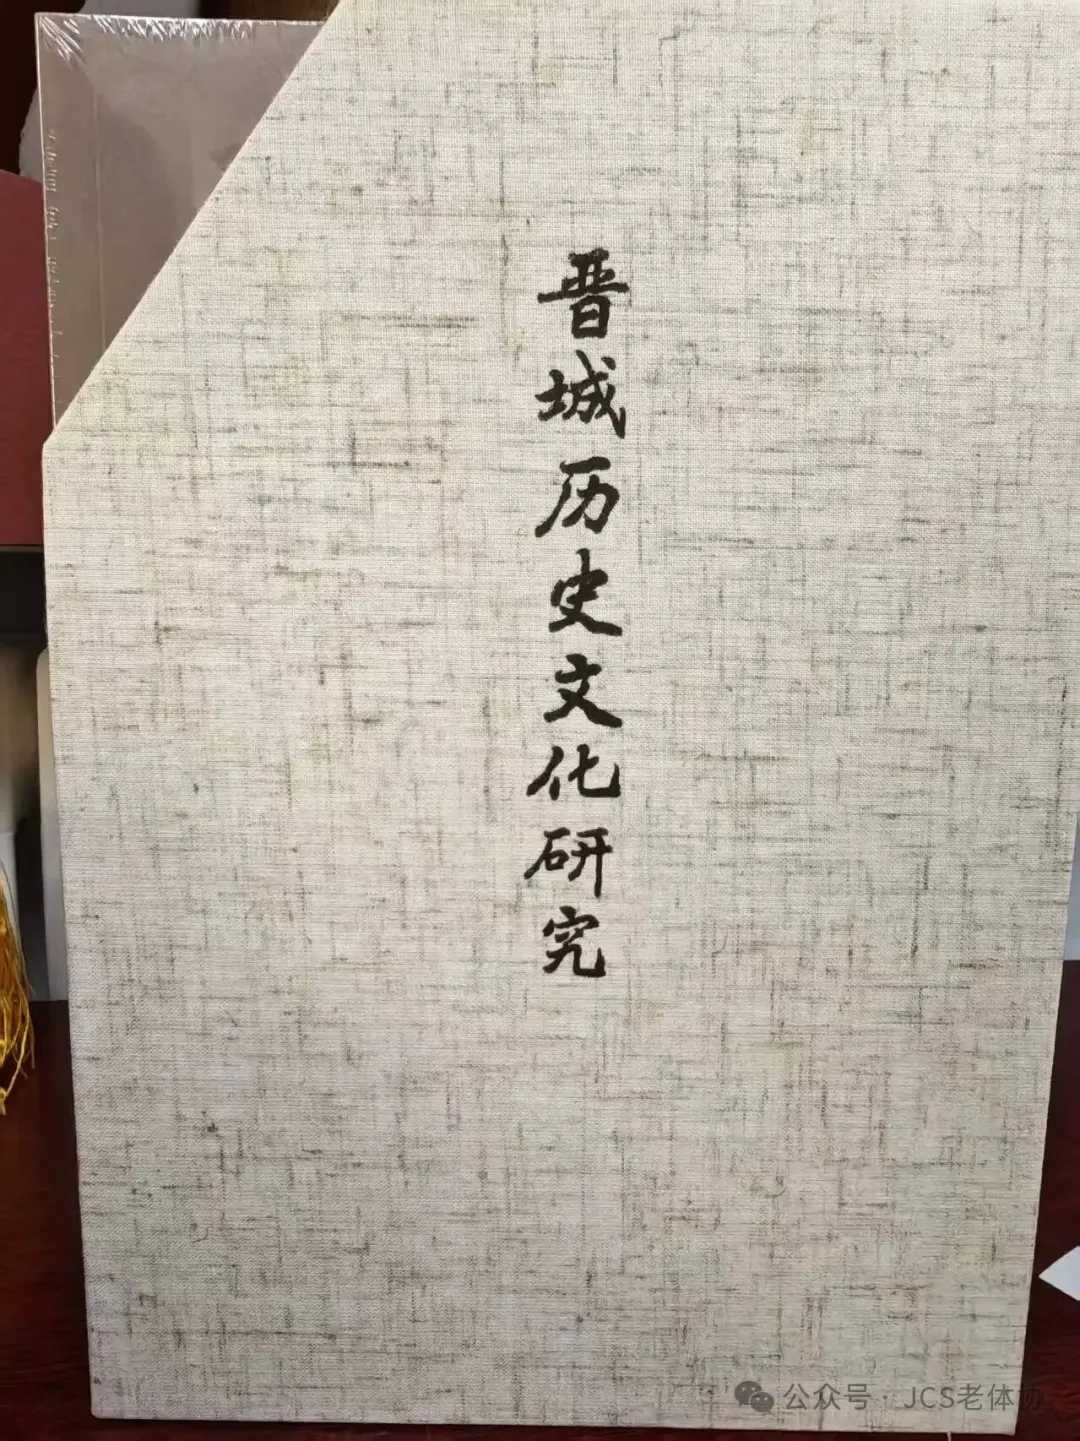 晋城历史文化研究
公众号·JCS老体协